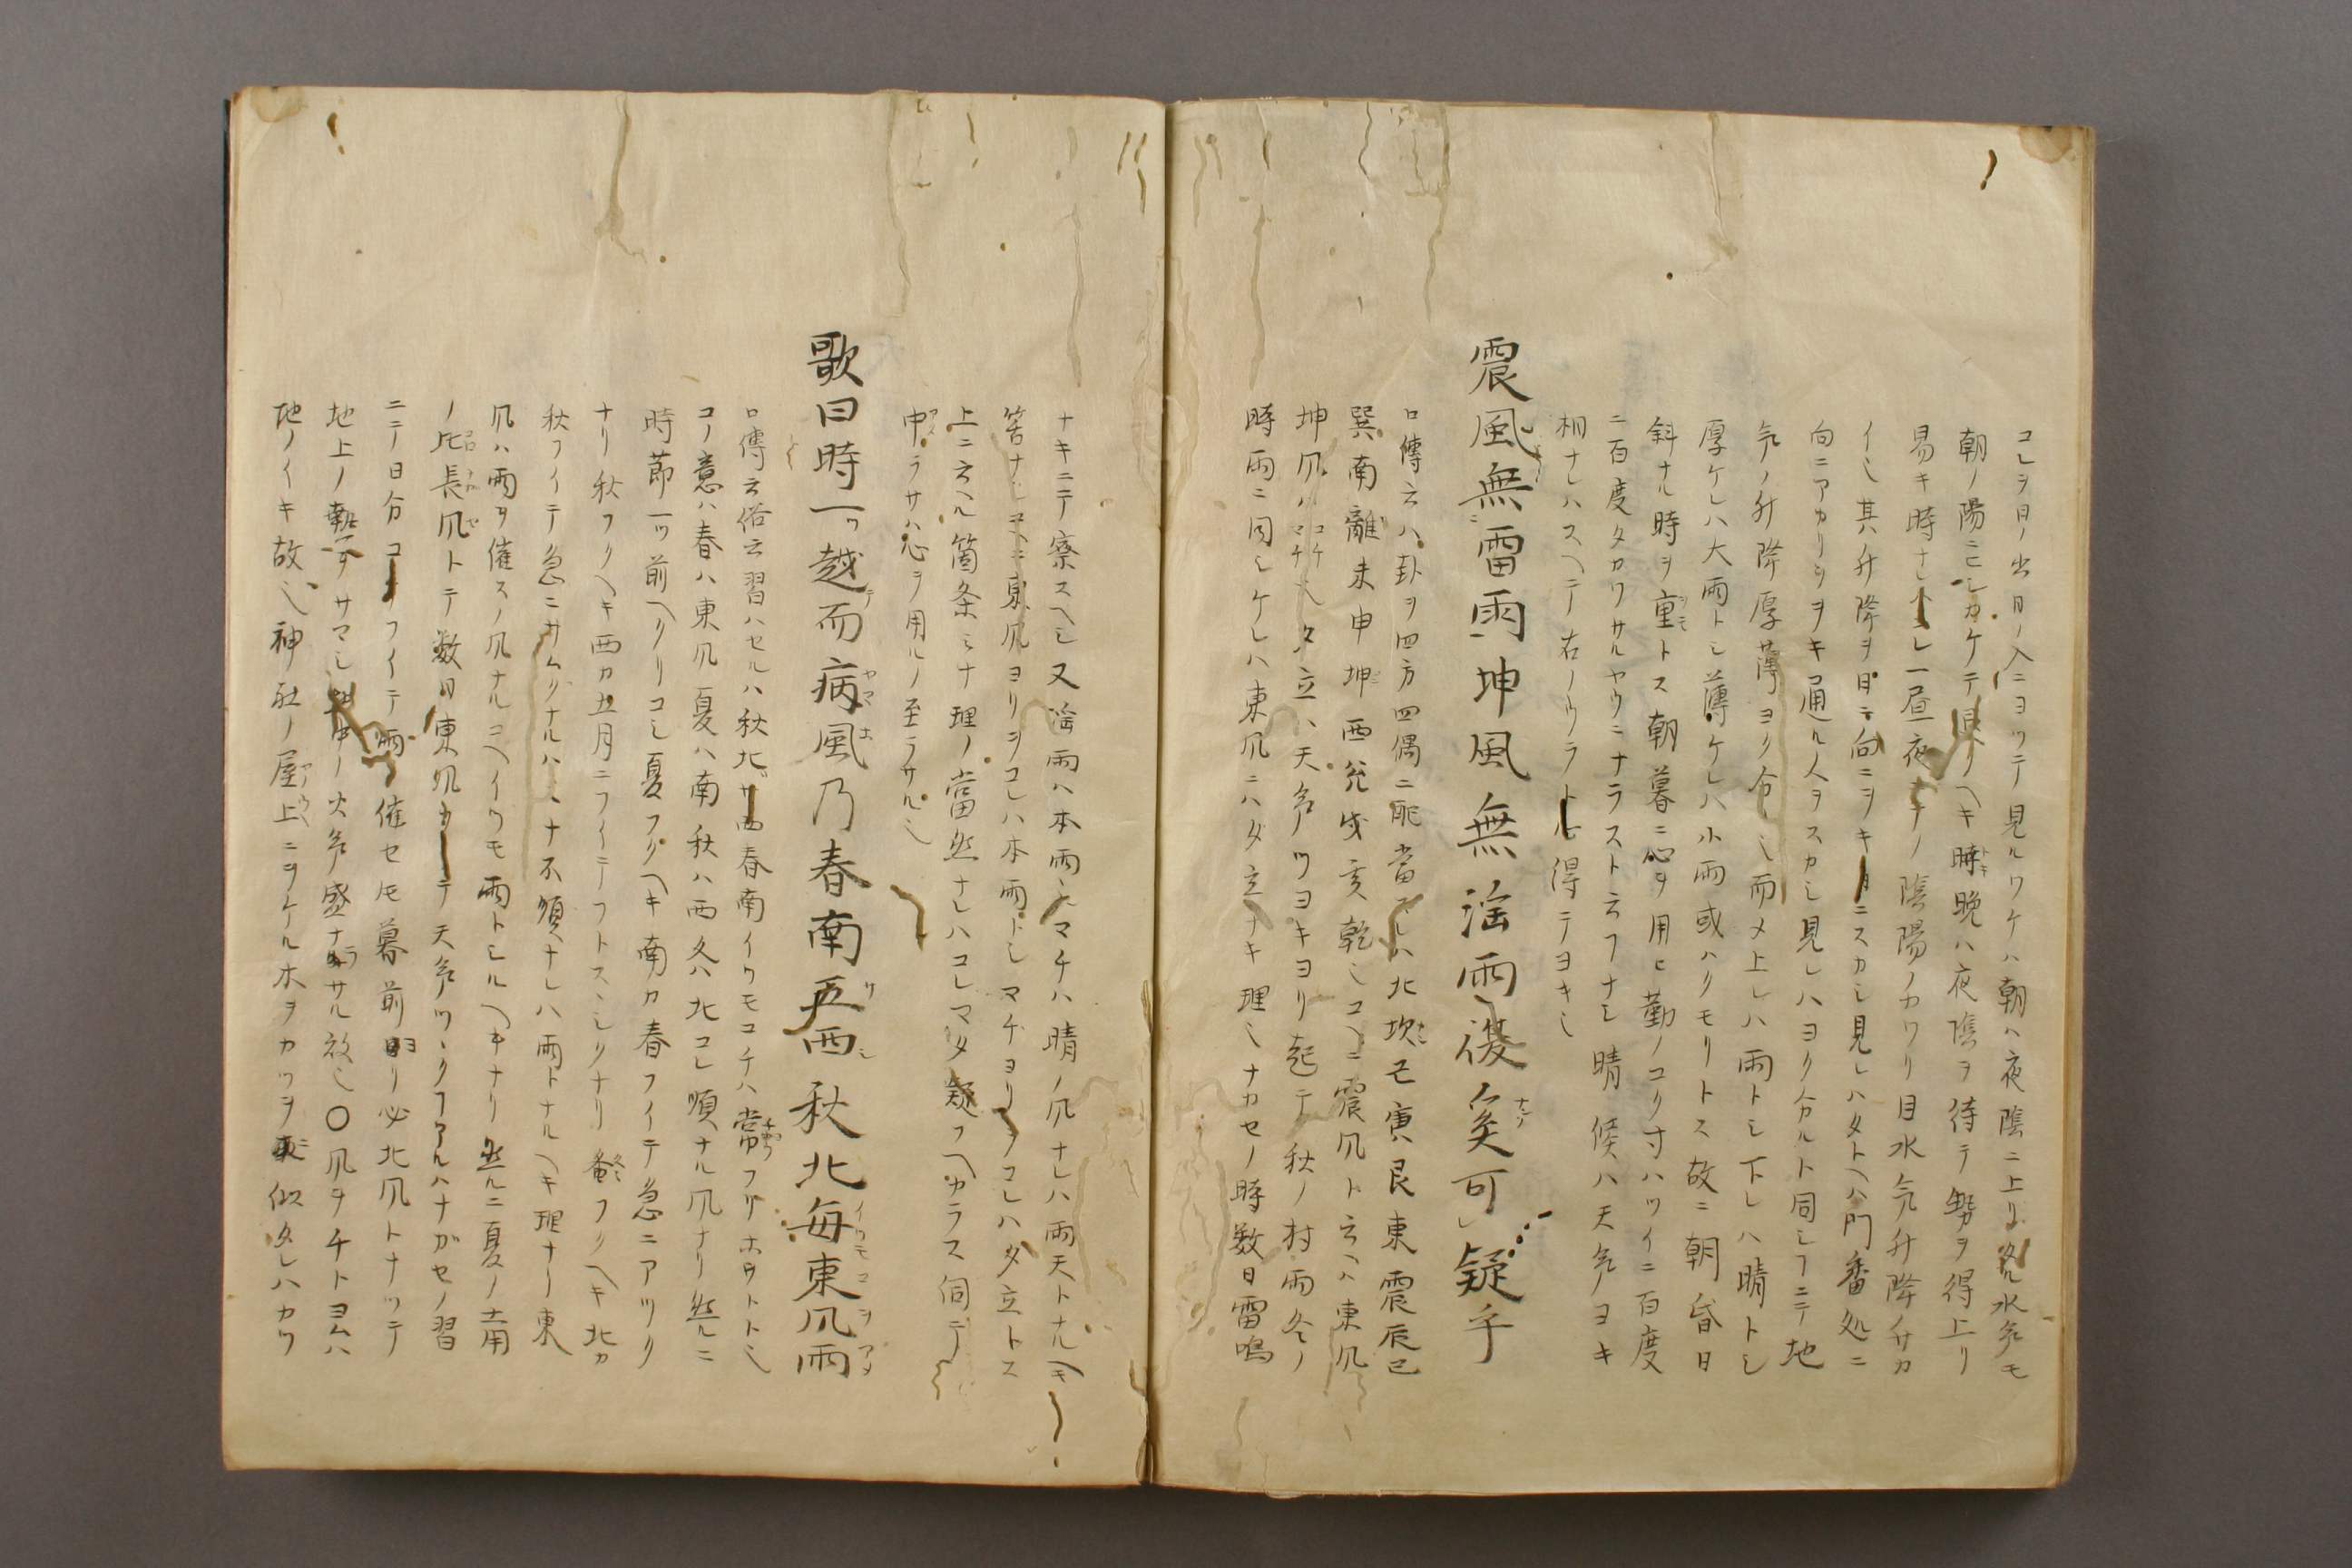 コレヲ日ノ出日ノ入ニヨツテ見ルワケハ朝ハ夜陰ニ上リ水気モ
朝ノ陽ニヒシカケテ見リヘキ時晩ハ夜陰ヲ待テ勢ヲ得上リ
易キ時ナレハ一昼夜ノ陰陽ノカワリ目水気升降ノサカ
イ也其升降ヲ日ニ向ニヲキ月ニスカシ見レハタトヘハ門番処ニ
向ニアカリヲヲキ通ル人ヲスカシ見レハヨク分ルト同シフニテ地
気ノ升降厚薄ヨク分ル也而メ上レハ雨トシ下レハ晴トシ
厚ケレハ大雨トシ薄ケレハ小雨或ハクモリトス故ニ朝昏日
斜ナル時ヲ重トス朝暮ニ心ヲ用ヒ勤ノコリ寸ハツイニ百度
ニ百度タカワサルヤウニナラスト云フナシ晴候ハ天気ノヨキ
相ナレハスヘテ右ノウラト心得テヨキ也
震風無雷雨坤風無淫雨復奚可レ疑乎
口傳云八卦ヲ四方四偶ニ配當スレハ北坎丑寅艮東震辰巳
巽南離未申坤西兌戌亥乾也コヽニ震風ト云ヘハ東风
坤风ハコケマチ也夕立ハ天気ツヨキヨリ起テ秋ノ村雨冬ノ
時雨ニ同シケレハ東风ニハ夕立ナキ理也ナカセノ時数日雷鳴
ナキニテ察スヘシ又淫雨ハ本雨也マチハ晴ノ风ナレハ雨天トナルヘキ
筈ナシコヽニ東风ヨリヲコレハ本雨トシマチヨリヲコレハ夕立トス
上ニ云ヘル箇条ミナ理ノ當然ナレハコレマタ疑フヘカラス伺テ
中ラサハ心ヲ用ルノ至ラサル也
歌曰時一ツ越而病風乃春南夏西秋北毎東风雨
口傳云俗云習ハセルハ秋北サ西春南イツモコチハ常フリホウト也
コノ意ハ春ハ東风夏ハ南秋ハ西冬ハ北コレ順ナル风ナリ然ルニ
時節一ツ前ヘクリコシ夏フクヘキ南カ春フイテ急ニアツク
ナリ秋フクヘキ西カ五月ニフイテフトスヽシクナリ冬フクヘキ北カ
秋フイテ急ニサムクナルハミナ不順ナレハ雨トナルヘキ理ナリ東
风ハ雨ヲ催スノ风ナルユヘイツモ雨トシルヘキナリ然ルニ夏ノ土用
ノ比長风トテ数日東风カフテ天気ツヽクフアルハナガセノ習
ニテ日分コチフイテ雨催セ圧暮前ヨリ必北风トナツテ
地上ノ熱ヲサマシ地中ノ火気盛ナラサル故也○风ヲチトヨムハ
地ノイキ故也神社ノ屋上ニヲケル木ヲカツヲ木似タレハカツ